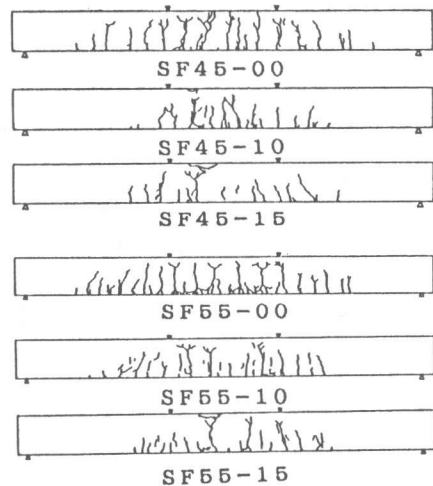 SF45-00
SF45-10
SF45-15
SF55-00
SF55-10
SF55-15